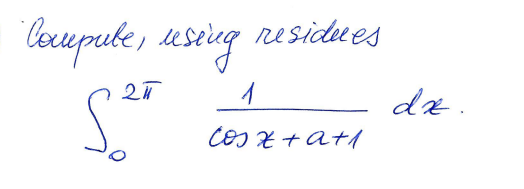 Compute, using residues
∫₀^{2π} 1/(cos x + a + 1) dx.